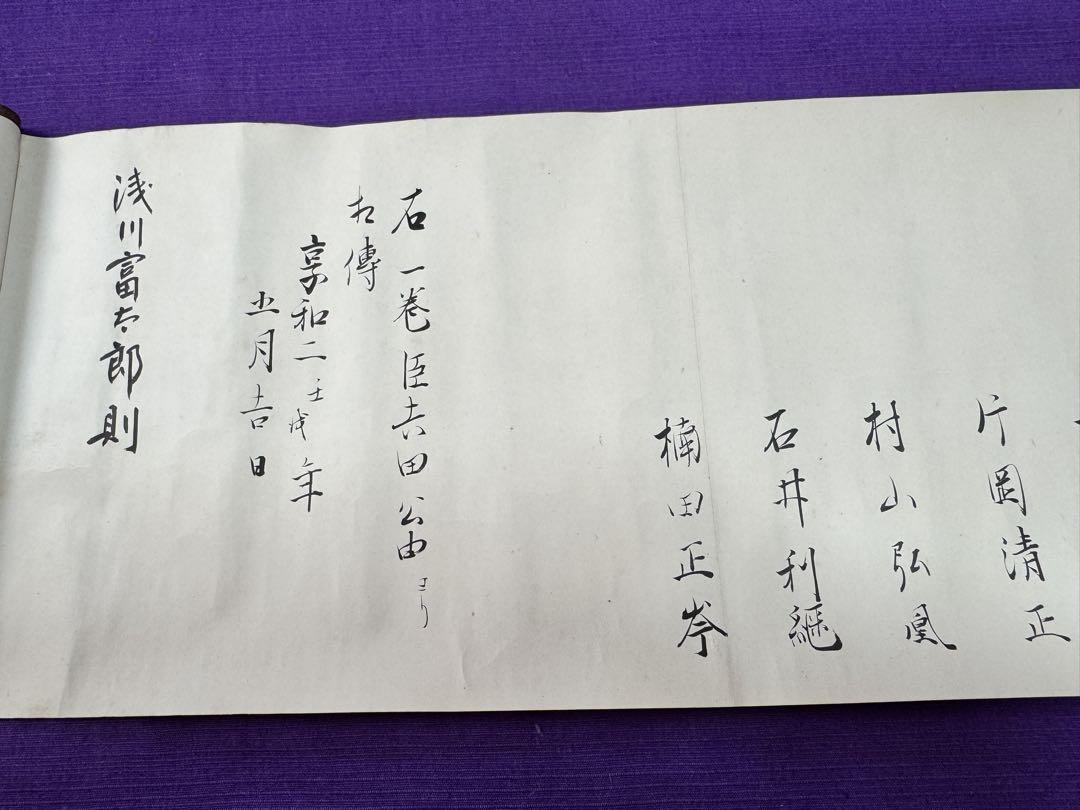 片岡清正
村山弘凰
石井利継
楠田正岑
右一巻臣吉田公由ヨリ
相傳
享和二壬戌年
五月吉日
浅川富太郎則